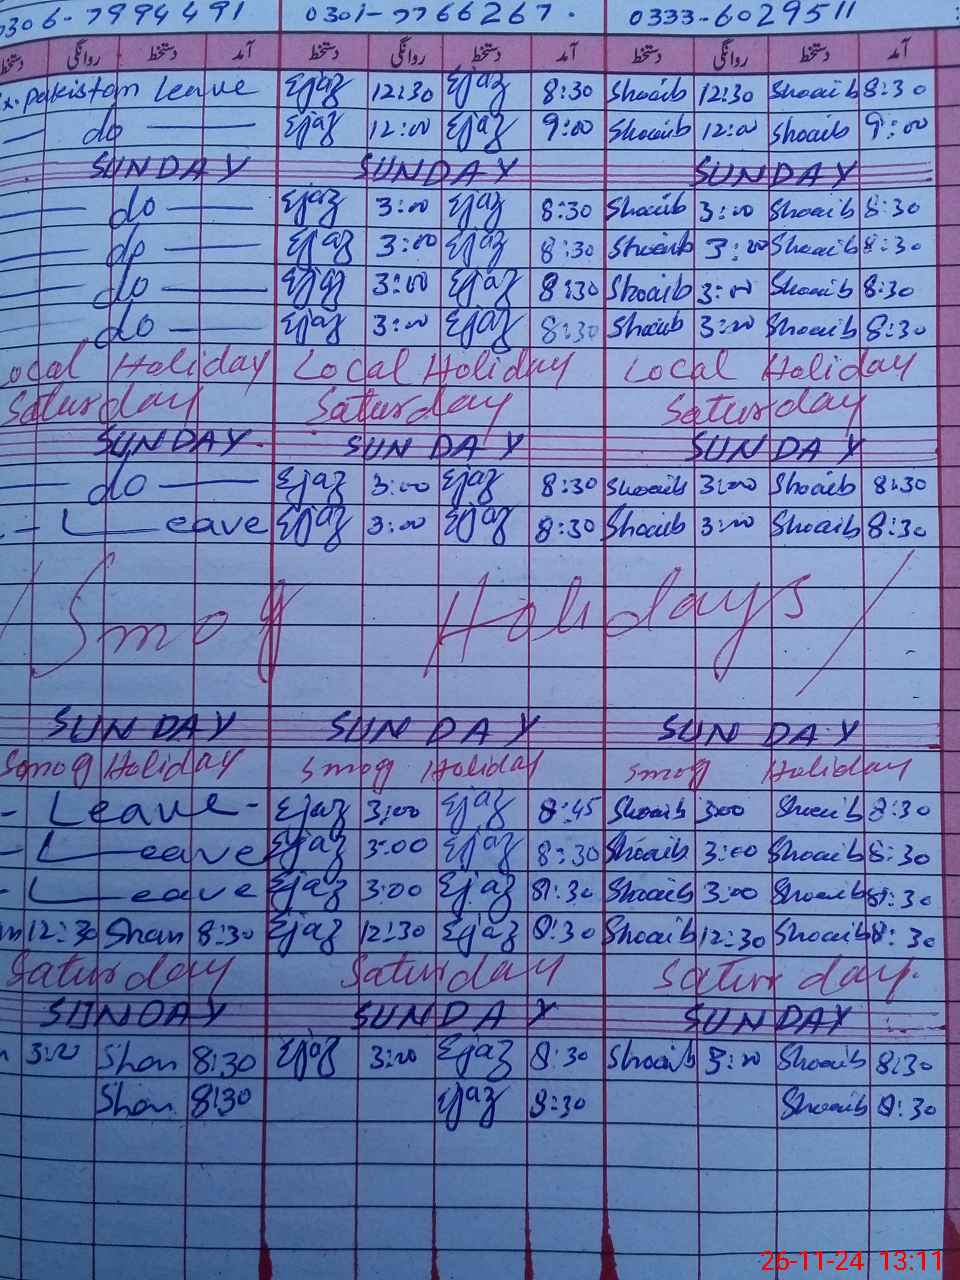 0306-7994491 0301-7766267. 0333-6029511
دستخط روانگی دستخط آمد دستخط روانگی دستخط آمد دستخط روانگی دستخط آمد
Ex. Pakistan Leave Ejaz 12:30 Ejaz 8:30 Shoaib 12:30 Shoaib 8:30
— do — Ejaz 12:00 Ejaz 9:00 Shoaib 12:00 Shoaib 9:00
SUNDAY SUNDAY SUNDAY
— do — Ejaz 3:00 Ejaz 8:30 Shoaib 3:00 Shoaib 8:30
— do — Ejaz 3:00 Ejaz 8:30 Shoaib 3:00 Shoaib 8:30
— do — Ejaz 3:00 Ejaz 8:30 Shoaib 3:00 Shoaib 8:30
— do — Ejaz 3:00 Ejaz 8:30 Shoaib 3:00 Shoaib 8:30
ocal Holiday Local Holiday Local Holiday
Saturday Saturday Saturday
SUNDAY SUNDAY SUNDAY
— do — Ejaz 3:00 Ejaz 8:30 Shoaib 3:00 Shoaib 8:30
- Leave Ejaz 3:00 Ejaz 8:30 Shoaib 3:00 Shoaib 8:30
/ Smog Holidays /
SUNDAY SUNDAY SUNDAY
Smog Holiday Smog Holiday Smog Holiday
- Leave - Ejaz 3:00 Ejaz 8:45 Shoaib 3:00 Shoaib 8:30
- Leave Ejaz 3:00 Ejaz 8:30 Shoaib 3:00 Shoaib 8:30
- Leave Ejaz 3:00 Ejaz 8:30 Shoaib 3:00 Shoaib 8:30
12:30 Shan 8:30 Ejaz 12:30 Ejaz 8:30 Shoaib 12:30 Shoaib 8:30
Saturday Saturday Saturday.
SUNDAY SUNDAY SUNDAY
3:00 Shan 8:30 Ejaz 3:00 Ejaz 8:30 Shoaib 3:00 Shoaib 8:30
Shan 8:30 Ejaz 8:30 Shoaib 8:30
26-11-24 13:11